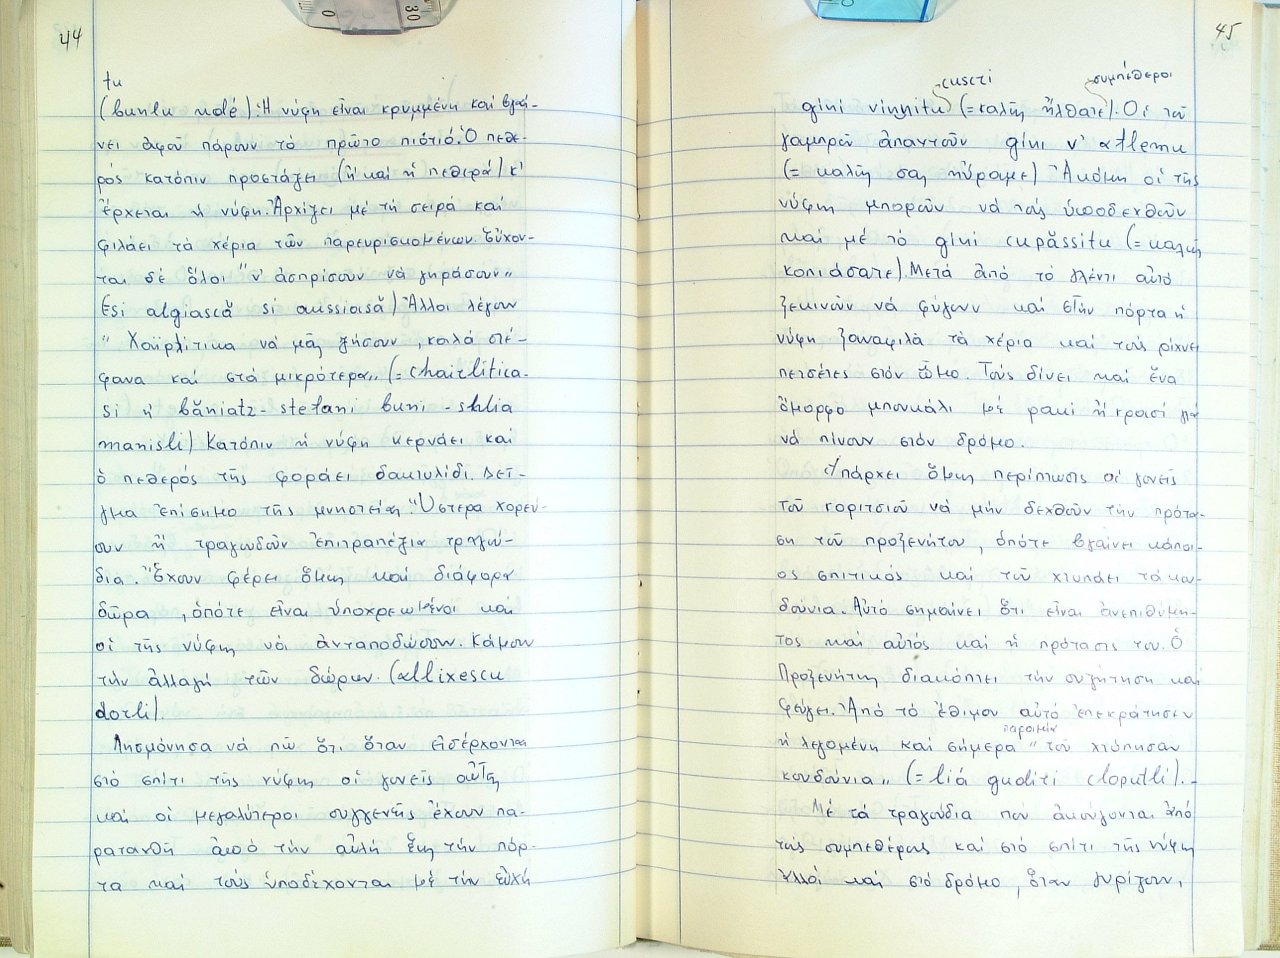 44
tu
(buntu nolé): Ἡ νύφη εἶναι κρυμμένη καί βγαί-
νει ἀφοῦ πάρουν τό πρῶτο πιότό. Ὁ πεθε-
ρός κατόπιν προστάζει (ἤ καί ἡ πεθερά) κι
ἔρχεται ἡ νύφη. Ἀρχίζει μέ τή σειρά καί
φιλάει τά χέρια τῶν παρευρισκομένων. Εὔχον-
ται δέ ὅλοι "ν' ἀσπρίσουν νά γηράσουν"
(si algiască si aussiască) Ἄλλοι λέγουν
" Χαϊρλίτικα νά μᾶς ζήσουν, καλά στέ-
φανα καί στά μικρότερα" (= chairlitica-
si ń băniatz - stefani buni - shlia
manisli) Κατόπιν ἡ νύφη κερνάει καί
ὁ πεθερός τῆς φοράει δακτυλίδι. Δεῖ-
γμα ἐπίσημο τῆς μνηστείας. Ὕστερα χορεύ-
ουν ἤ τραγουδοῦν ἐπιτραπέζια τραγού-
δια. Ἔχουν φέρει ὅμως καί διάφορα
δῶρα, ὁπότε εἶναι ὑποχρεωμένοι καί
οἱ τῆς νύφης νά ἀνταποδώσουν. Κάμουν
τήν ἀλλαγή τῶν δώρων. (allixescu
dorli).
Λησμόνησα νά πῶ ὅτι ὅταν εἰσέρχονται
στό σπίτι τῆς νύφης οἱ γονεῖς αὐτῆς
καί οἱ μεγαλύτεροι συγγενεῖς ἔχουν πα-
ραταχθῆ ἀπό τήν αὐλή ἕως τήν πόρ-
τα καί τούς ὑποδέχονται μέ τήν εὐχή
45
cuscri συμπέθεροι
gini vinnitu (= καλῶς ἤλθατε). Οἱ τοῦ
γαμπροῦ ἀπαντοῦν gini v' aflemu
(= καλῶς σας ηὕραμε) Ἀκόμη οἱ τῆς
νύφης μποροῦν νά τούς ὑποδεχθοῦν
καί μέ τό gini cupăssitu (= καλῶς
κοπιάσατε). Μετά ἀπό τό γλέντι αὐτό
ξεκινοῦν νά φύγουν καί στήν πόρτα ἡ
νύφη ξαναφιλᾶ τά χέρια καί τούς ρίχνει
πετσέτες στόν ὦμο. Τούς δίνει καί ἕνα
ὄμορφο μπουκάλι μέ ρακί ἤ κρασί γιά
νά πίνουν στόν δρόμο.
Ὑπάρχει ὅμως περίπτωσις οἱ γονεῖς
τοῦ κοριτσιοῦ νά μήν δεχθοῦν τήν πρότα-
ση τοῦ προξενήτου, ὁπότε βγαίνει κάποι-
ος σπιτικός καί τοῦ χτυπάει τά κου-
δούνια. Αὐτό σημαίνει ὅτι εἶναι ἀνεπιθύμη-
τος καί αὐτός καί ἡ πρότασις του. Ὁ
Προξενήτης διακόπτει τήν συζήτηση καί
φεύγει. Ἀπό τό ἔθιμον αὐτό ἐπεκράτησεν
παροιμία
ἡ λεγομένη καί σήμερα "τοῦ χτύπησαν
κουδούνια" (= liá guditi cloputli).-
Μέ τά τραγούδια πού ἀκούγονται ἀπό
τούς συμπεθέρους καί στό σπίτι τῆς νύφης
ἀλλά καί στό δρόμο, ὅταν γυρίζουν,